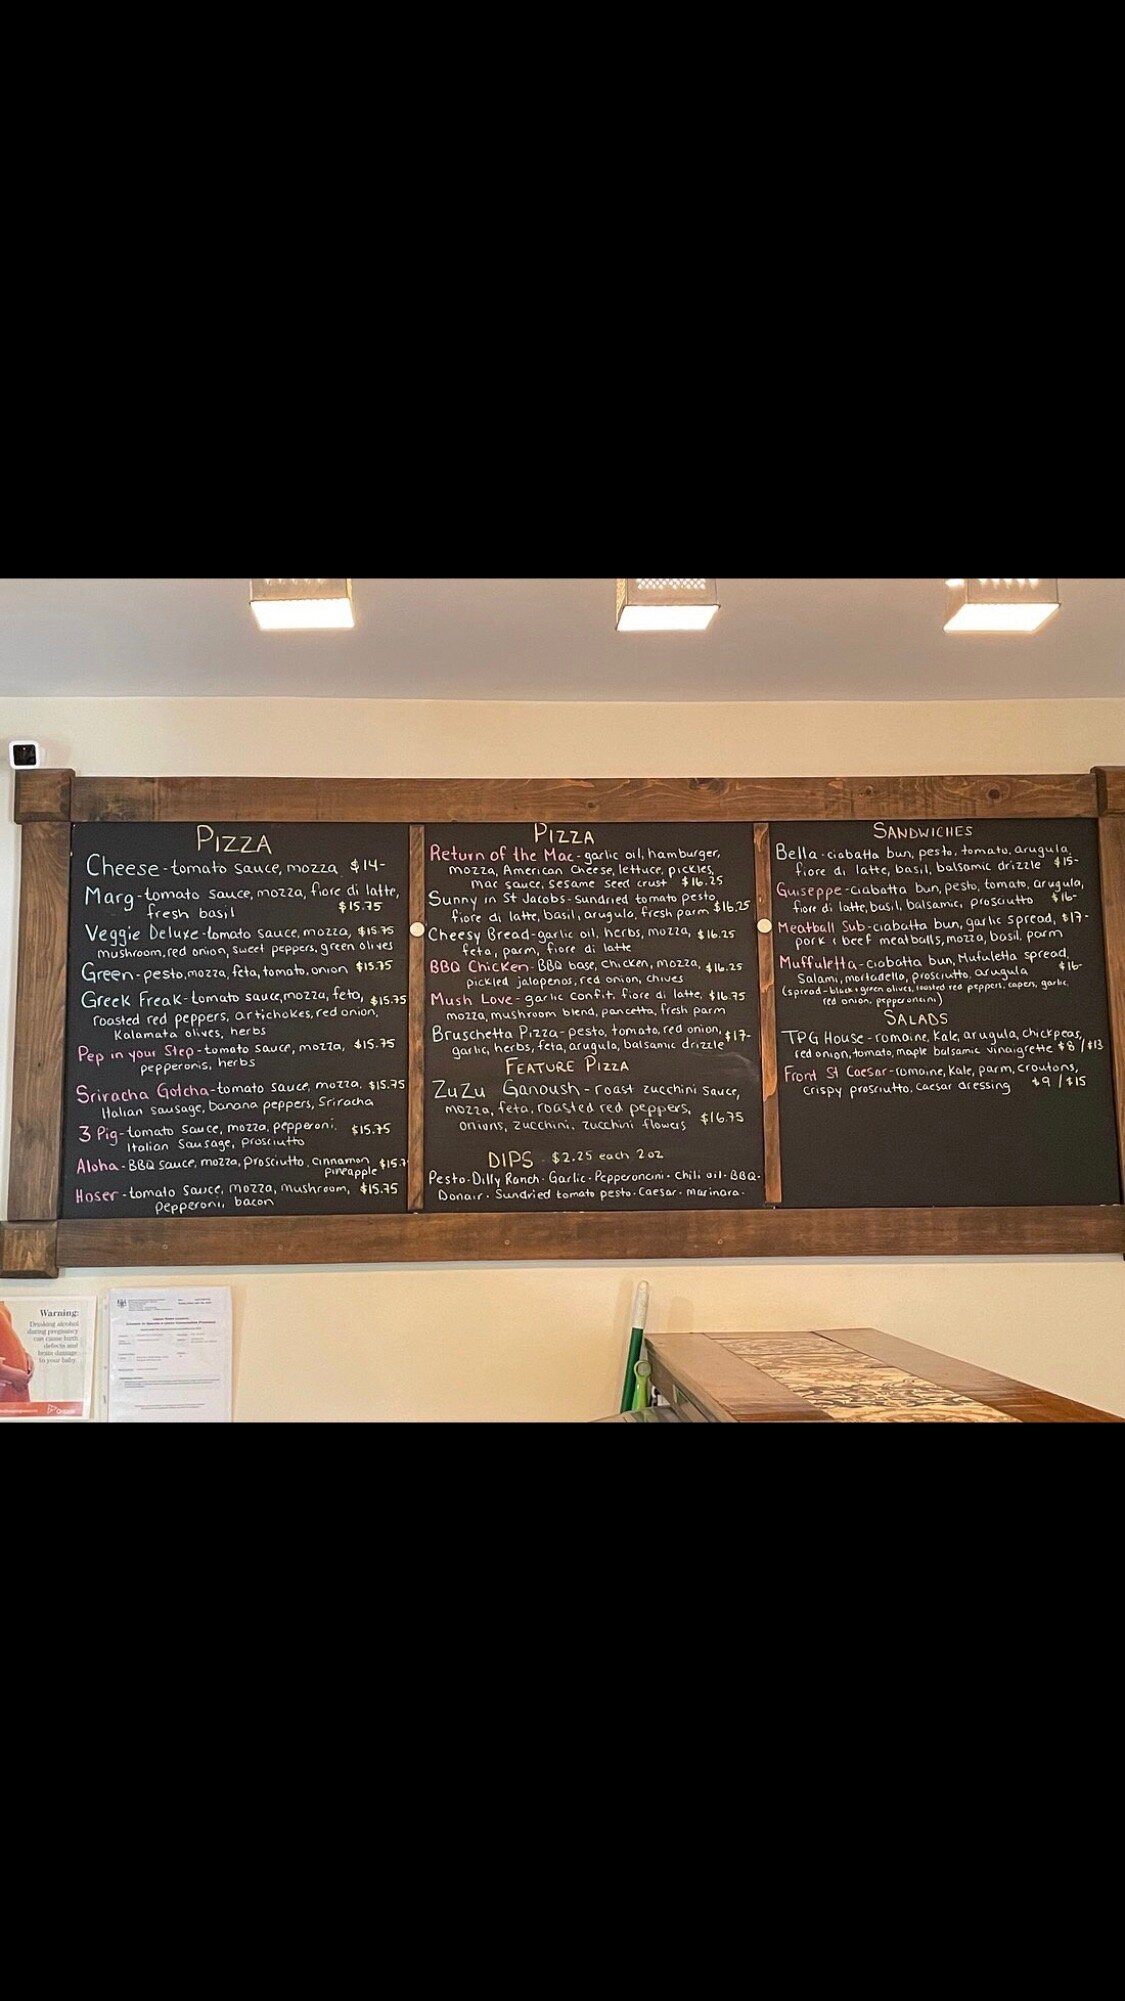 PIZZA
Cheese-tomato sauce, mozza $14-
Marg-tomato sauce, mozza, fiore di latte,
fresh basil $15.75
Veggie Deluxe-tomato sauce, mozza, $15.75
mushroom, red onion, sweet peppers, green olives
Green-pesto, mozza, feta, tomato, onion $15.75
Greek Freak-tomato sauce, mozza, feta, $15.75
roasted red peppers, artichokes, red onion,
Kalamata olives, herbs
Pep in your Step-tomato sauce, mozza, $15.75
pepperonis, herbs
Sriracha Gotcha-tomato sauce, mozza, $15.75
Italian sausage, banana peppers, Sriracha
3 Pig-tomato sauce, mozza, pepperoni, $15.75
Italian Sausage, prosciutto
Aloha-BBQ sauce, mozza, prosciutto, cinnamon
pineapple $15.7
Hoser-tomato sauce, mozza, mushroom, $15.75
pepperoni, bacon
PIZZA
Return of the Mac-garlic oil, hamburger,
mozza, American cheese, lettuce, pickles,
mac sauce, sesame seed crust $16.25
Sunny in St Jacobs-sundried tomato pesto
fiore di latte, basil, arugula, fresh parm $16.25
Cheesy Bread-garlic oil, herbs, mozza, $16.25
feta, parm, fiore di latte
BBQ Chicken-BBQ base, chicken, mozza, $16.25
pickled jalapenos, red onion, chives
Mush Love-garlic confit, fiore di latte, $16.75
mozza, mushroom blend, pancetta, fresh parm
Bruschetta Pizza-pesto, tomato, red onion, $17-
garlic, herbs, feta, arugula, balsamic drizzle
FEATURE PIZZA
ZuZu Ganoush-roast zucchini sauce,
mozza, feta, roasted red peppers,
onions, zucchini, zucchini flowers $16.75
DIPS - $2.25 each 2oz
Pesto·Dilly Ranch·Garlic·Pepperoncini·Chili oil·BBQ·
Donair·Sundried tomato pesto·Caesar·marinara·
SANDWICHES
Bella-ciabatta bun, pesto, tomato, arugula,
fiore di latte, basil, balsamic drizzle $15-
Guiseppe-ciabatta bun, pesto, tomato, arugula,
fiore di latte, basil, balsamic, prosciutto $16-
Meatball Sub-ciabatta bun, garlic spread, $17-
pork & beef meatballs, mozza, basil, parm
Muffuletta-ciabatta bun, Mufuletta spread,
Salami, mortadella, prosciutto, arugula $16-
(spread-black & green olives, roasted red peppers, capers, garlic,
red onion, pepperoncini)
SALADS
TPG House-romaine, kale, arugula, chickpeas,
red onion, tomato, maple balsamic vinaigrette $8/$13
Front St Caesar-romaine, kale, parm, croutons,
crispy prosciutto, caesar dressing $9/$15
Warning:
Drinking alcohol
during pregnancy
can cause birth
defects and
brain damage
to your baby.
Ontario